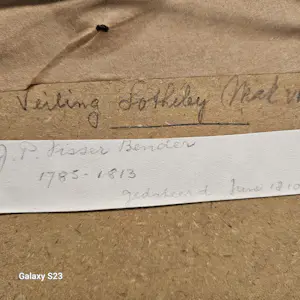 Veiling Sotheby Mak v
J. P. Visser Bender
1785 - 1813
gedateerd Juni 1810
Galaxy S23